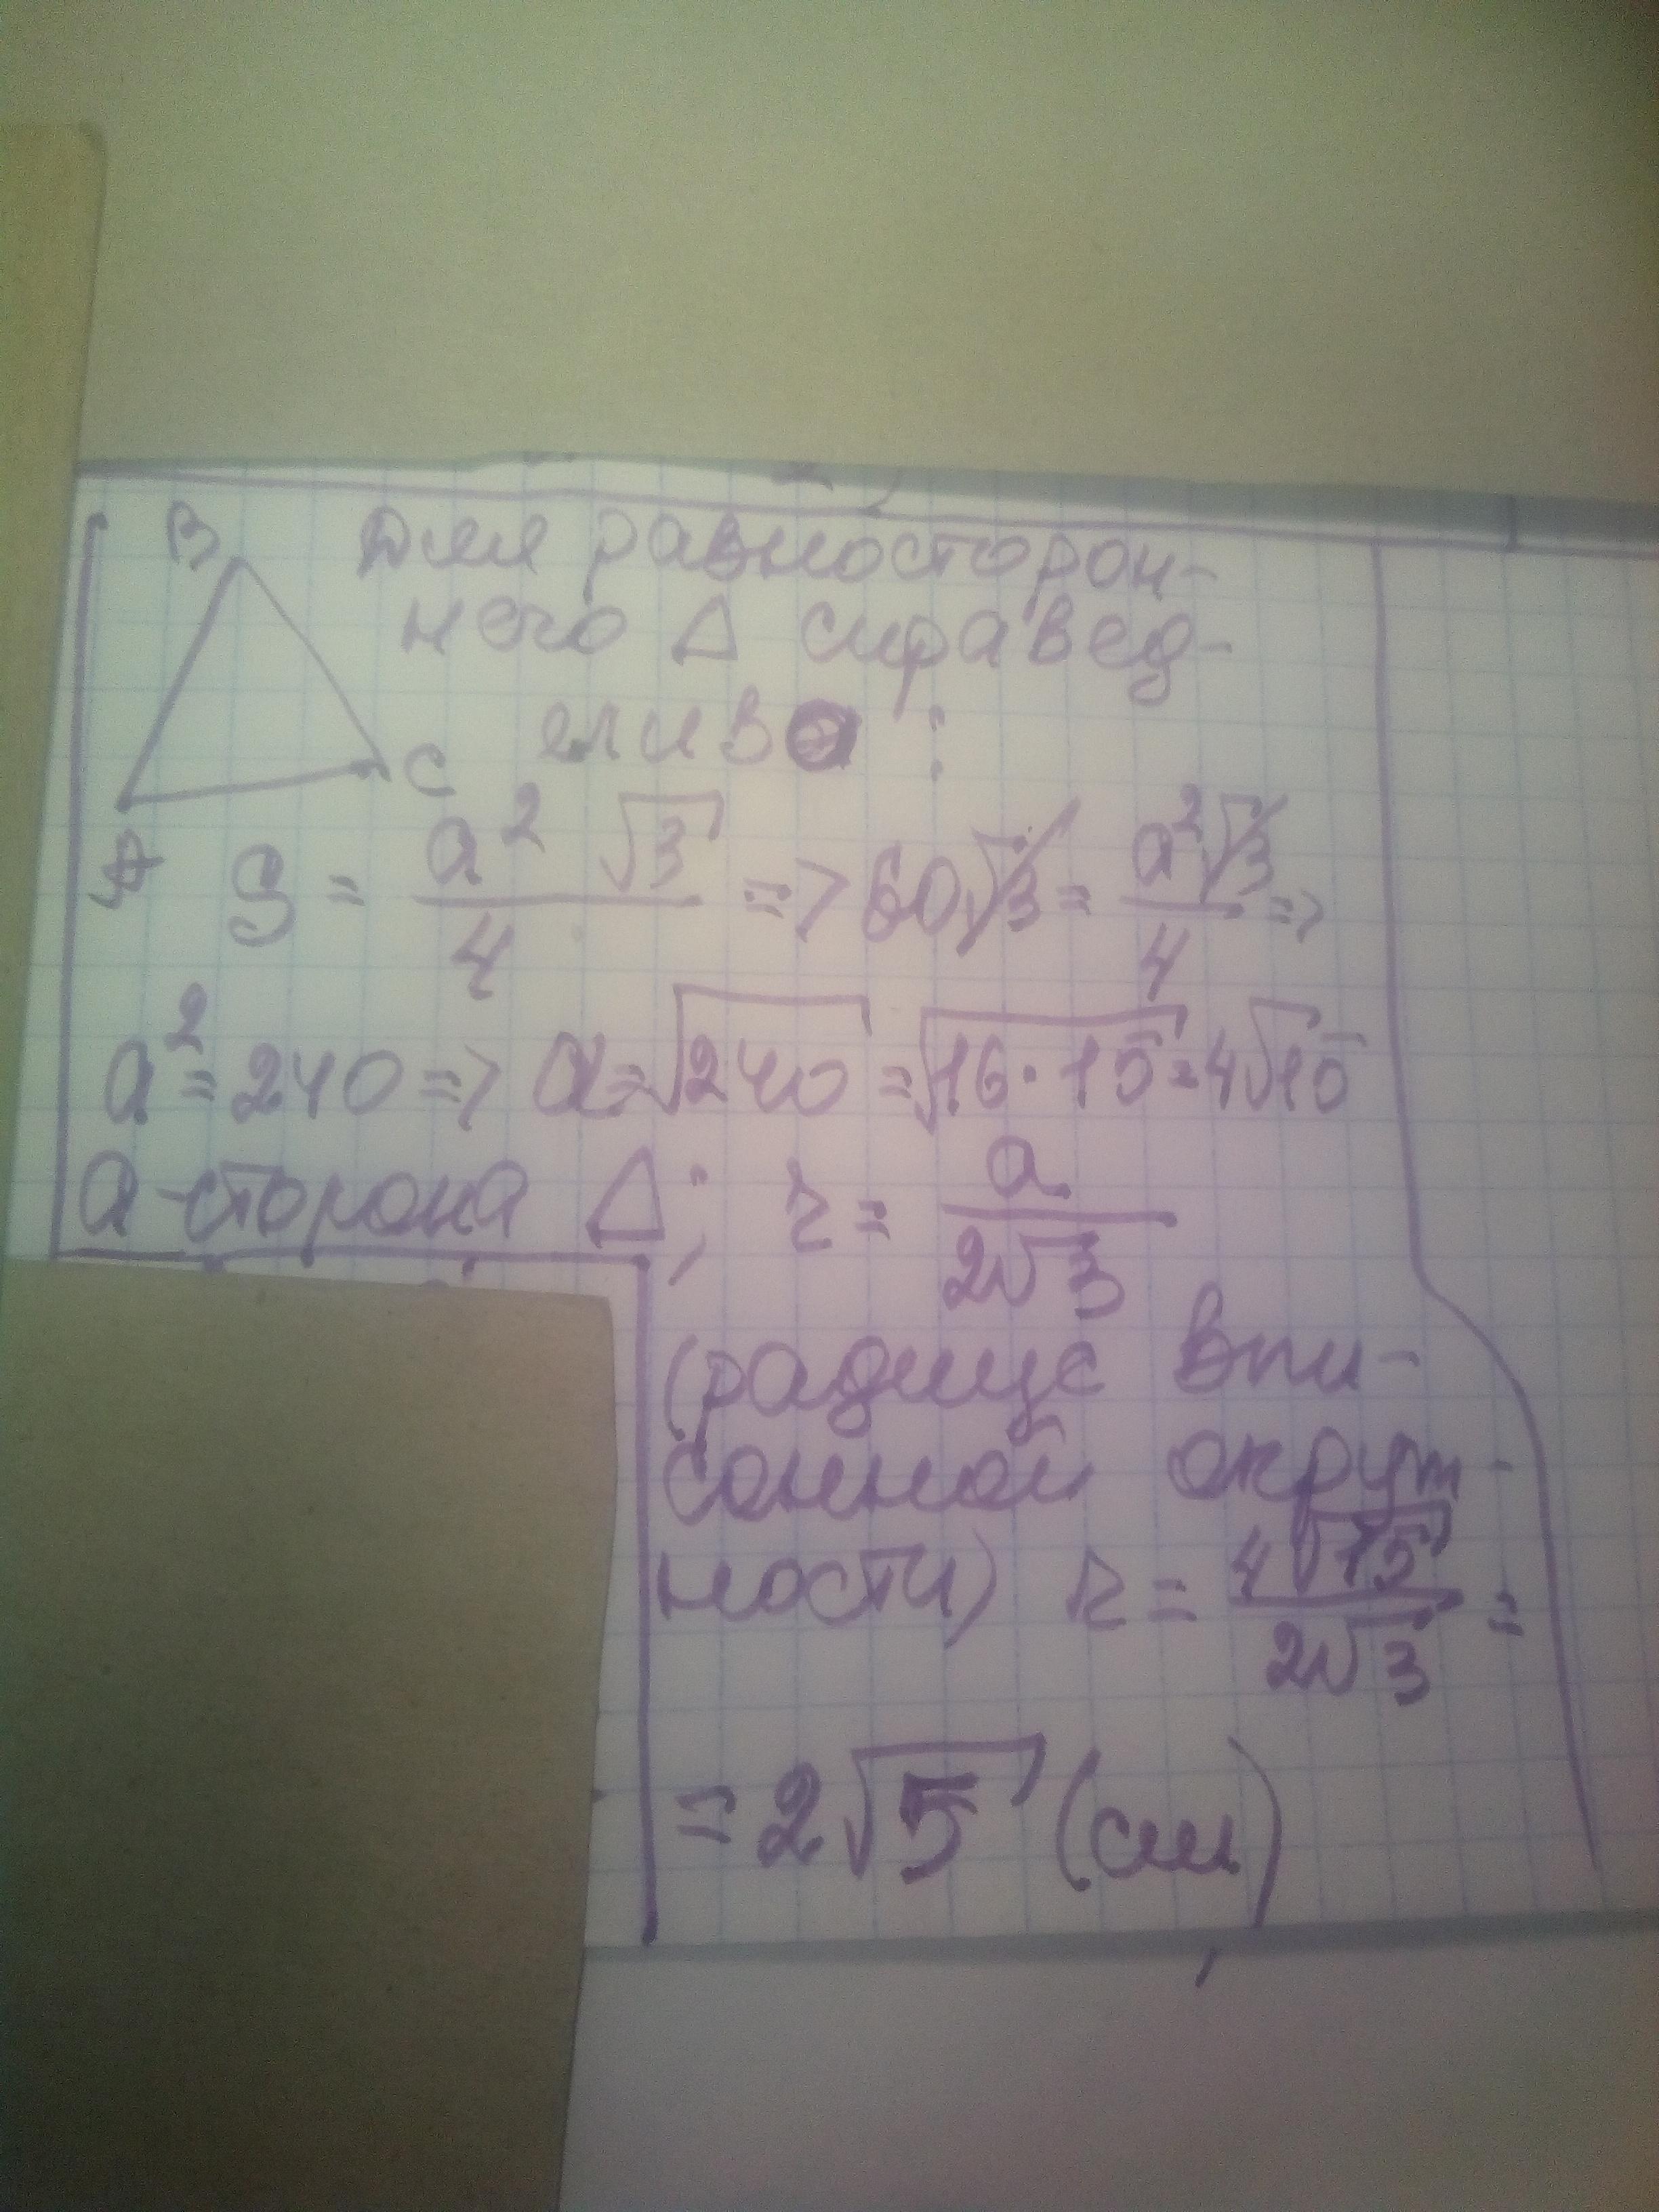 B
Для равносторон-
него Δ справед-
ливо :
C
A
S = a² √3 / 4 => 60√3 = a²√3 / 4 =>
a² = 240 => a = √240 = √16·15 = 4√15
a - сторона Δ; r = a / 2√3
(радиус впи-
санной окруж-
ности) r = 4√15 / 2√3 =
= 2√5 (см)